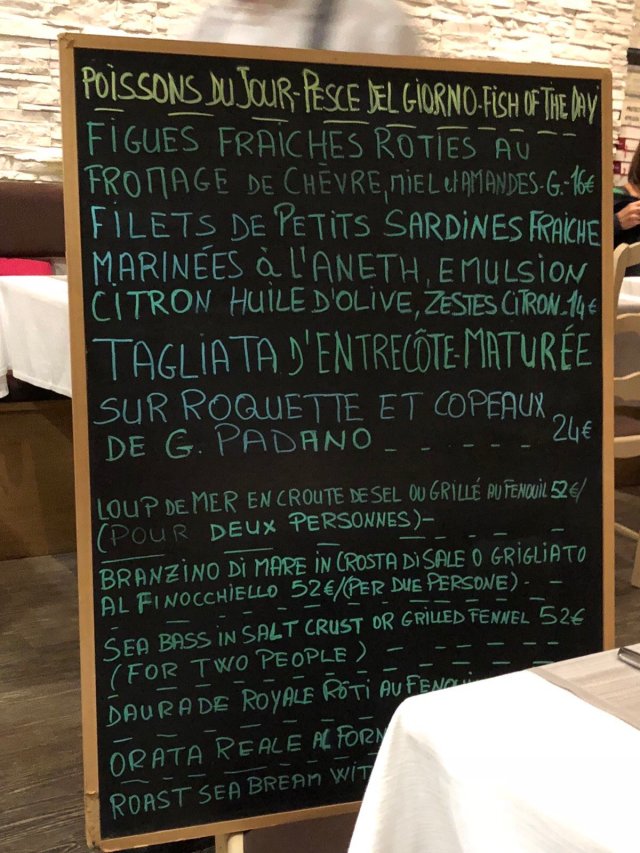 POISSONS DU JOUR-PESCE DEL GIORNO-FISH OF THE DAY
FIGUES FRAICHES ROTIES AU
FROMAGE DE CHÈVRE, MIEL et AMANDES-G.-16€
FILETS DE PETITS SARDINES FRAICHE
MARINÉES à L'ANETH, EMULSION
CITRON HUILE D'OLIVE, ZESTES CITRON-14€
TAGLIATA D'ENTRECÔTE-MATURÉE
SUR ROQUETTE ET COPEAUX
DE G. PADANO _ _ _ _ _ 24€
LOUP DE MER EN CROUTE DE SEL OU GRILLÉ AU FENOUIL 52€/
(POUR DEUX PERSONNES)-
BRANZINO DI MARE IN CROSTA DI SALE O GRIGLIATO
AL FINOCCHIELLO 52€/(PER DUE PERSONE) - -
SEA BASS IN SALT CRUST OR GRILLED FENNEL 52€
(FOR TWO PEOPLE)
DAURADE ROYALE RÔTI AU
ORATA REALE AL
ROAST SEA BREAM